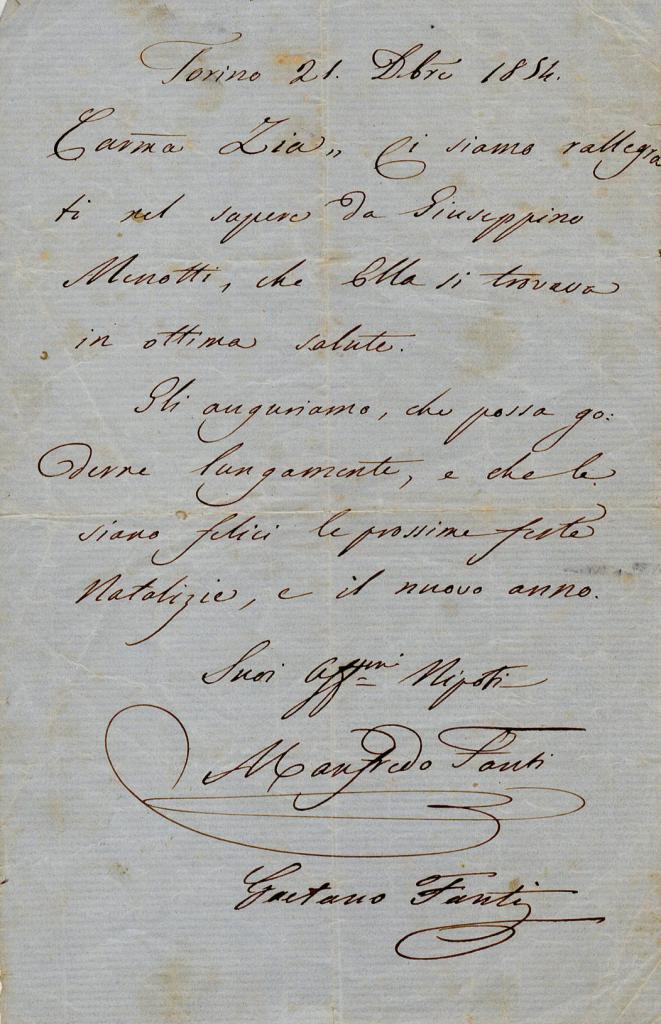 Torino 21. Dbre 1854.
Carma Zia„ Ci siamo rallegra
ti nel sapere da Giuseppino
Menotti, che Ella si trovava
in ottima salute.
Gli auguriamo, che possa go:
derne lungamente, e che le
siano felici le prossime feste
Natalizie, e il nuovo anno.
Suoi Affmi Nipoti
Manfredo Fanti
Gaetano Fanti